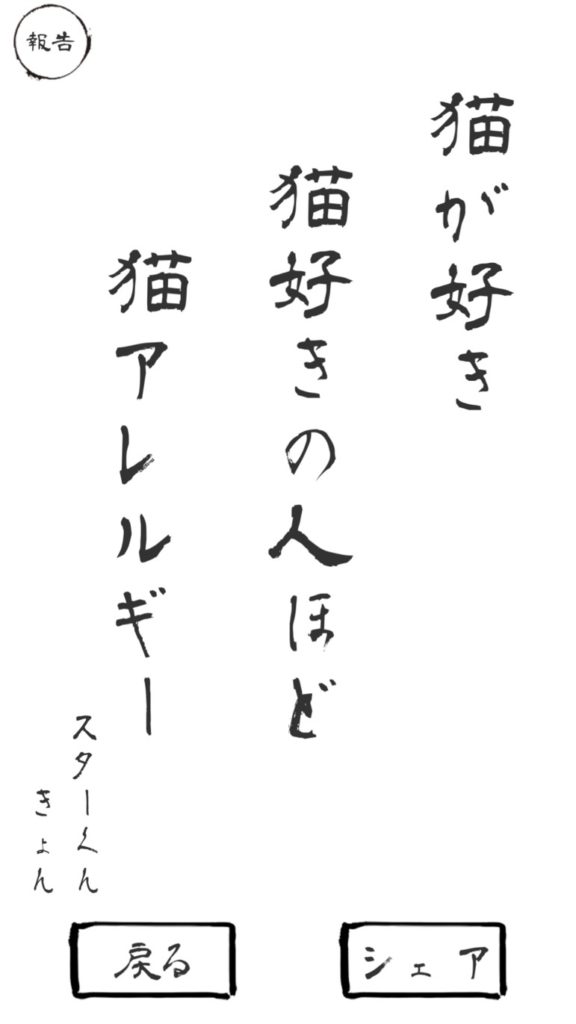 報告
猫が好き
猫好きの人ほど
猫アレルギー
スターくん
きょん
戻る
シェア